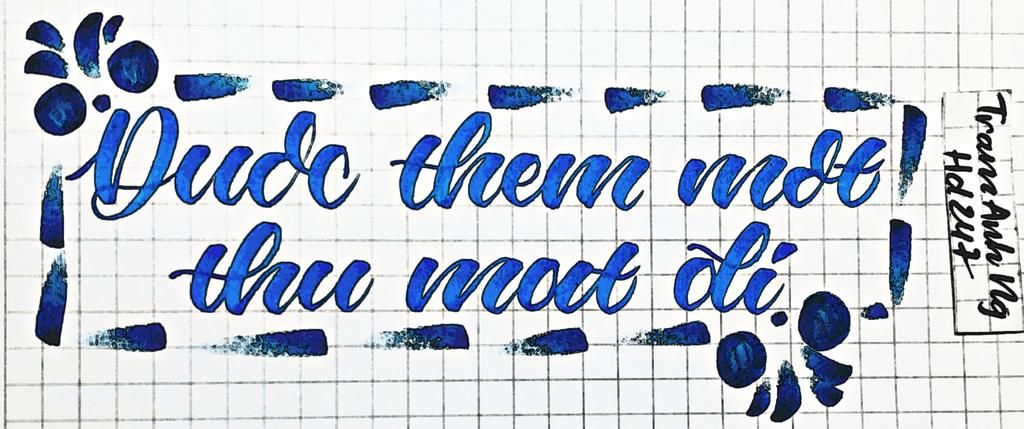 Duoc them mot
thu mat di
TramAnh Ng
Hd247